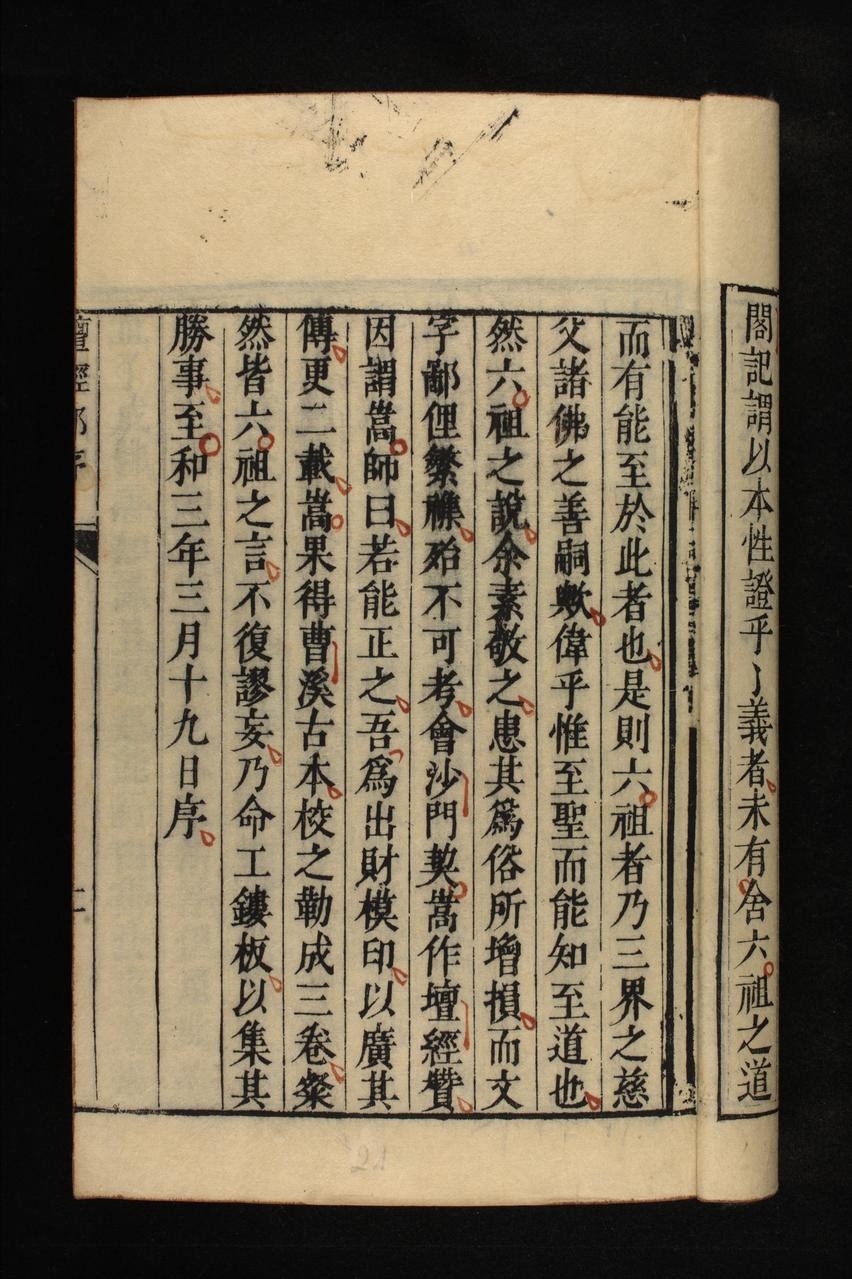 閣記謂以本性證乎了義者未有舍六祖之道
而有能至於此者也是則六祖者乃三界之慈
父諸佛之善嗣歟偉乎惟至聖而能知至道也
然六祖之說余素敬之患其爲俗所增損而文
字鄙俚繁襍殆不可考會沙門契嵩作壇經贊
因謂嵩師曰若能正之吾爲出財模印以廣其
傳更二載嵩果得曹溪古本校之勒成三卷粲
然皆六祖之言不復謬妄乃命工鏤板以集其
勝事至和三年三月十九日序
壇經郎序
二